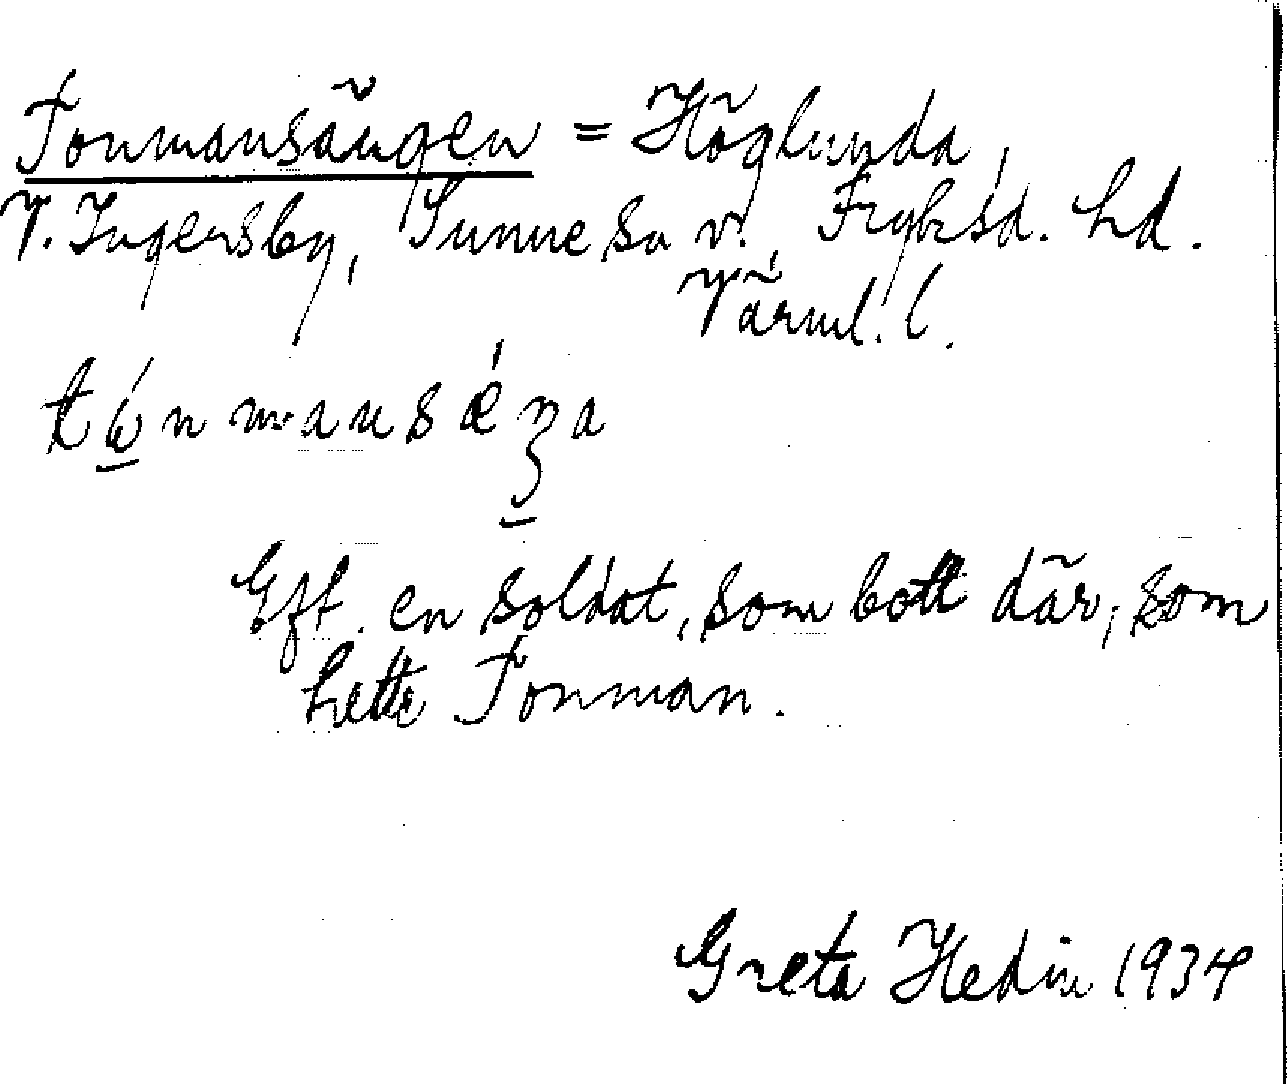 Tonmansängen = Höglunda,
V. Ingersby, Sunne sn v., Fryksd. hd.
Värml. l.
Eft. en soldat, som bott där, som
hette Tonman.
Greta Hedin 1934